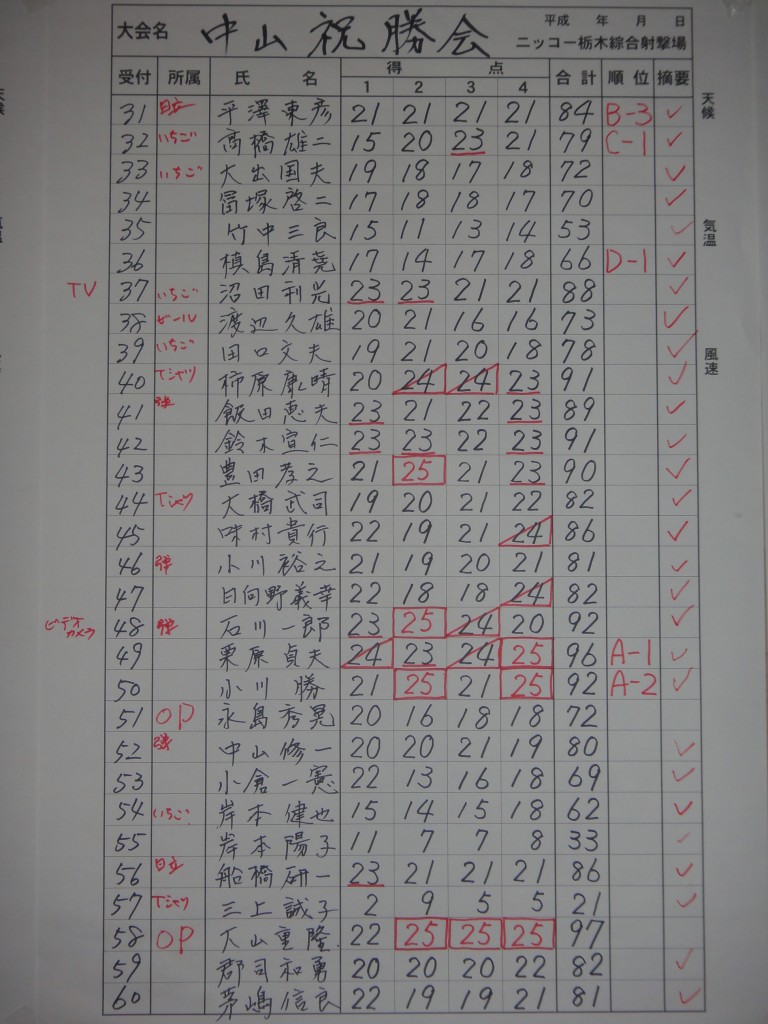 大会名 中山祝勝会 平成 年 月 日
ニッコー栃木綜合射撃場
受付 所属 氏 名 得 点 合計 順位 摘要
1 2 3 4
天候
31 日立 平澤東彦 21 21 21 21 84 B-3 ✓
32 いちご 高橋雄二 15 20 23 21 79 C-1 ✓
33 いちご 大出国夫 19 18 17 18 72 ✓
34 冨塚啓二 17 18 18 17 70 ✓
35 竹中三良 15 11 13 14 53 ✓
気温
36 槙島清堯 17 14 17 18 66 D-1 ✓
TV 37 いちご 沼田利光 23 23 21 21 88 ✓
38 渡辺久雄 20 21 16 16 73 ✓
39 いちご 田口文夫 19 21 20 18 78 ✓
風速
40 Tシャツ 柿原康晴 20 24 24 23 91 ✓
41 弾 飯田恵夫 23 21 22 23 89 ✓
42 鈴木宣仁 23 23 22 23 91 ✓
43 豊田孝之 21 25 21 23 90 ✓
44 Tシャツ 大橋武司 19 20 21 22 82 ✓
45 味村貴行 22 19 21 24 86 ✓
46 弾 小川裕之 21 19 20 21 81 ✓
47 日向野義幸 22 18 18 24 82 ✓
ビデオカメラ 48 弾 石川一郎 23 25 24 20 92 ✓
49 栗原貞夫 24 23 24 25 96 A-1 ✓
50 小川勝 21 25 21 25 92 A-2 ✓
51 OP 永島秀晃 20 16 18 18 72
52 弾 中山修一 20 20 21 19 80 ✓
53 小倉一憲 22 13 16 18 69 ✓
54 いちご 岸本健也 15 14 15 18 62 ✓
55 岸本陽子 11 7 7 8 33 ✓
56 日立 船橋研一 23 21 21 21 86 ✓
57 Tシャツ 三上誠子 2 9 5 5 21 ✓
58 OP 大山重隆 22 25 25 25 97
59 郡司和勇 20 20 20 22 82 ✓
60 茅嶋信良 22 19 19 21 81 ✓